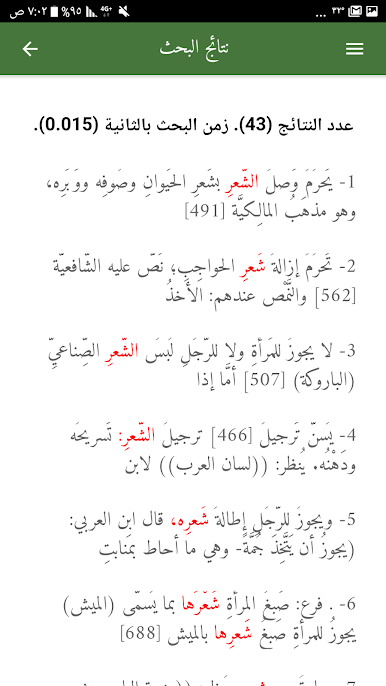 ٧:٠٢ ص ٩٥% 4G+ ٣٣° ...
نتائج البحث
عدد النتائج (43). زمن البحث بالثانية (0.015).
1- يَحرُمُ وَصلُ الشَّعرِ بشَعرِ الحَيوانِ وصُوفِه ووَبَرِه،
وهو مذهَبُ المالِكيَّة [491]
2- تَحرُمُ إزالةُ شَعرِ الحواجِبِ؛ نَصَّ عليه الشَّافعيَّة
[562] والنَّمْص عندهم: الأخذُ
3- لا يجوزُ للمَرأةِ ولا للرَّجُلِ لُبسُ الشَّعرِ الصِّناعيِّ
(الباروكة) [507] أمَّا إذا
4- يُسَنُّ تَرجيلُ [466] ترجيلُ الشَّعرِ: تَسريحُه
ودَهْنُه. يُنظر: ((لسان العرب)) لابن
5- ويجوزُ للرَّجُلِ إطالةُ شَعرِه، قال ابن العربي:
(يجوزُ أن يَتَّخِذَ جُمَّةً- وهي ما أحاط بمَنابتِ
6- . فرع: صَبغُ المرأةِ شَعْرَها بما يُسَمَّى (الميش)
يجوزُ للمرأةِ صَبغُ شَعرِها بالميش [688]